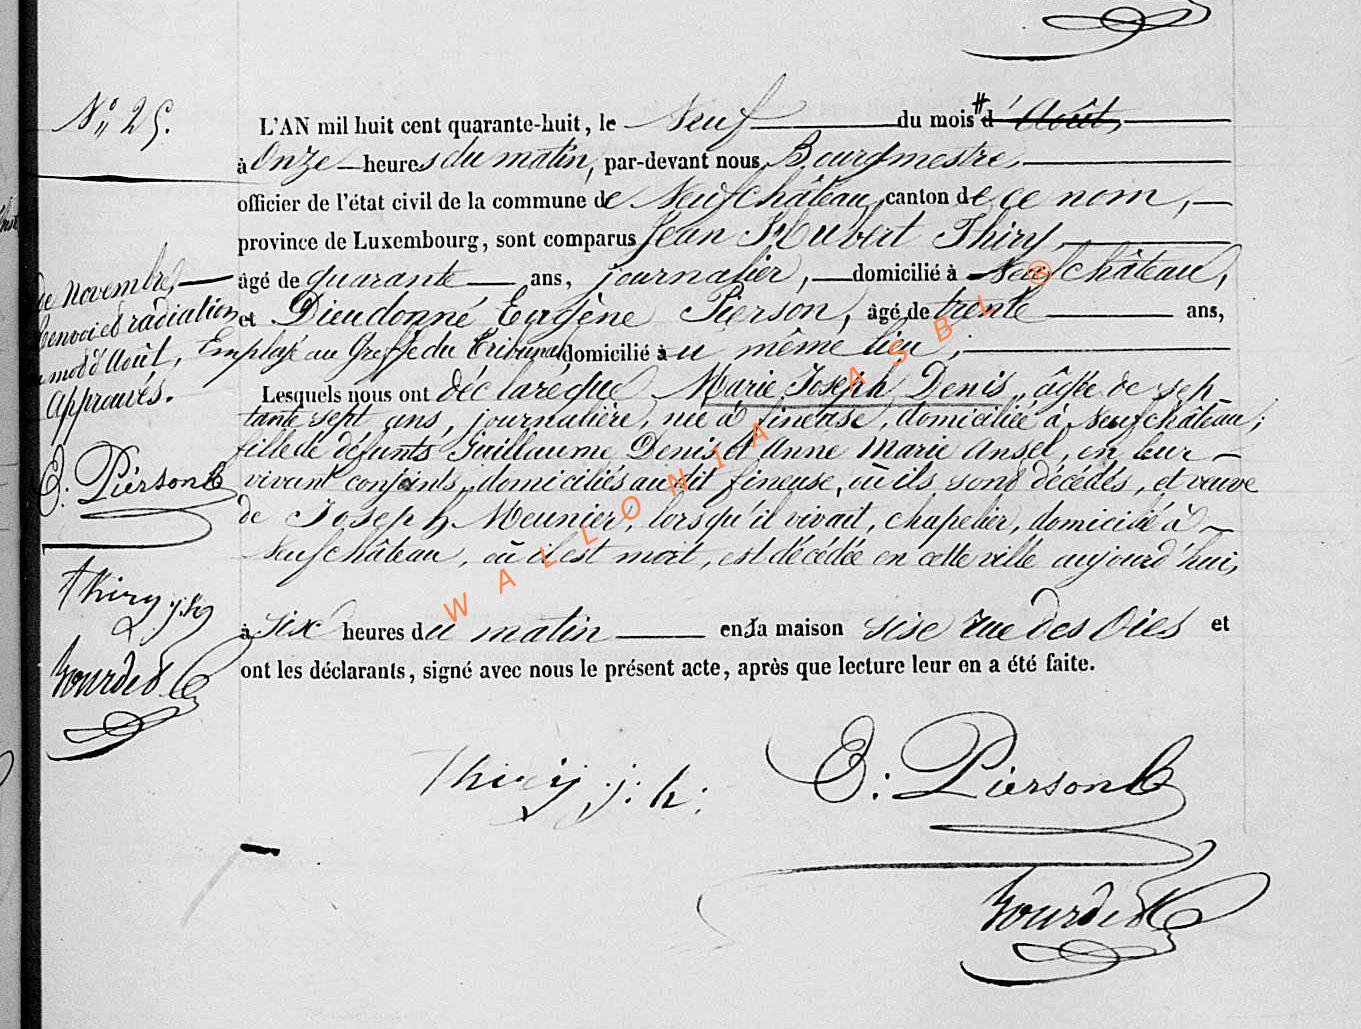 N° 25.
L'AN mil huit cent quarante-huit, le Neuf du mois # d'Août,
à Onze heures du matin, par-devant nous, Bourgmestre,
officier de l'état civil de la commune de Neufchâteau, canton de ce nom,
province de Luxembourg, sont comparus Jean Hubert Thiry,
âgé de quarante ans, journalier, domicilié à Neufchâteau,
et Dieudonné Eugène Pierson, âgé de trente ans,
Employé au Greffe du Tribunal domicilié au même lieu;
Lesquels nous ont déclaré que Marie Joseph Denis, âgée de sep
tante sept ans, journalière, née à fineuse, domiciliée à Neufchâteau;
fille de défunts Guillaume Denis et Anne Marie Ansel, en leur
vivant conjoints, domiciliés audit fineuse, où ils sont décédés, et veuve
de Joseph Meunier, lorsqu'il vivait, chapelier, domicilié à
Neufchâteau, où il est mort, est décédée en cette ville aujourd'hui,
à six heures du matin en la maison sise rue des Oies et
ont les déclarants, signé avec nous le présent acte, après que lecture leur en a été faite.
de novembre,
Renvoi et radiation
mot d'Août,
Approuvés.
E. Pierson
Thiry j. h
Thiry j. h.
E. Pierson
WALLONIA ASBL ®